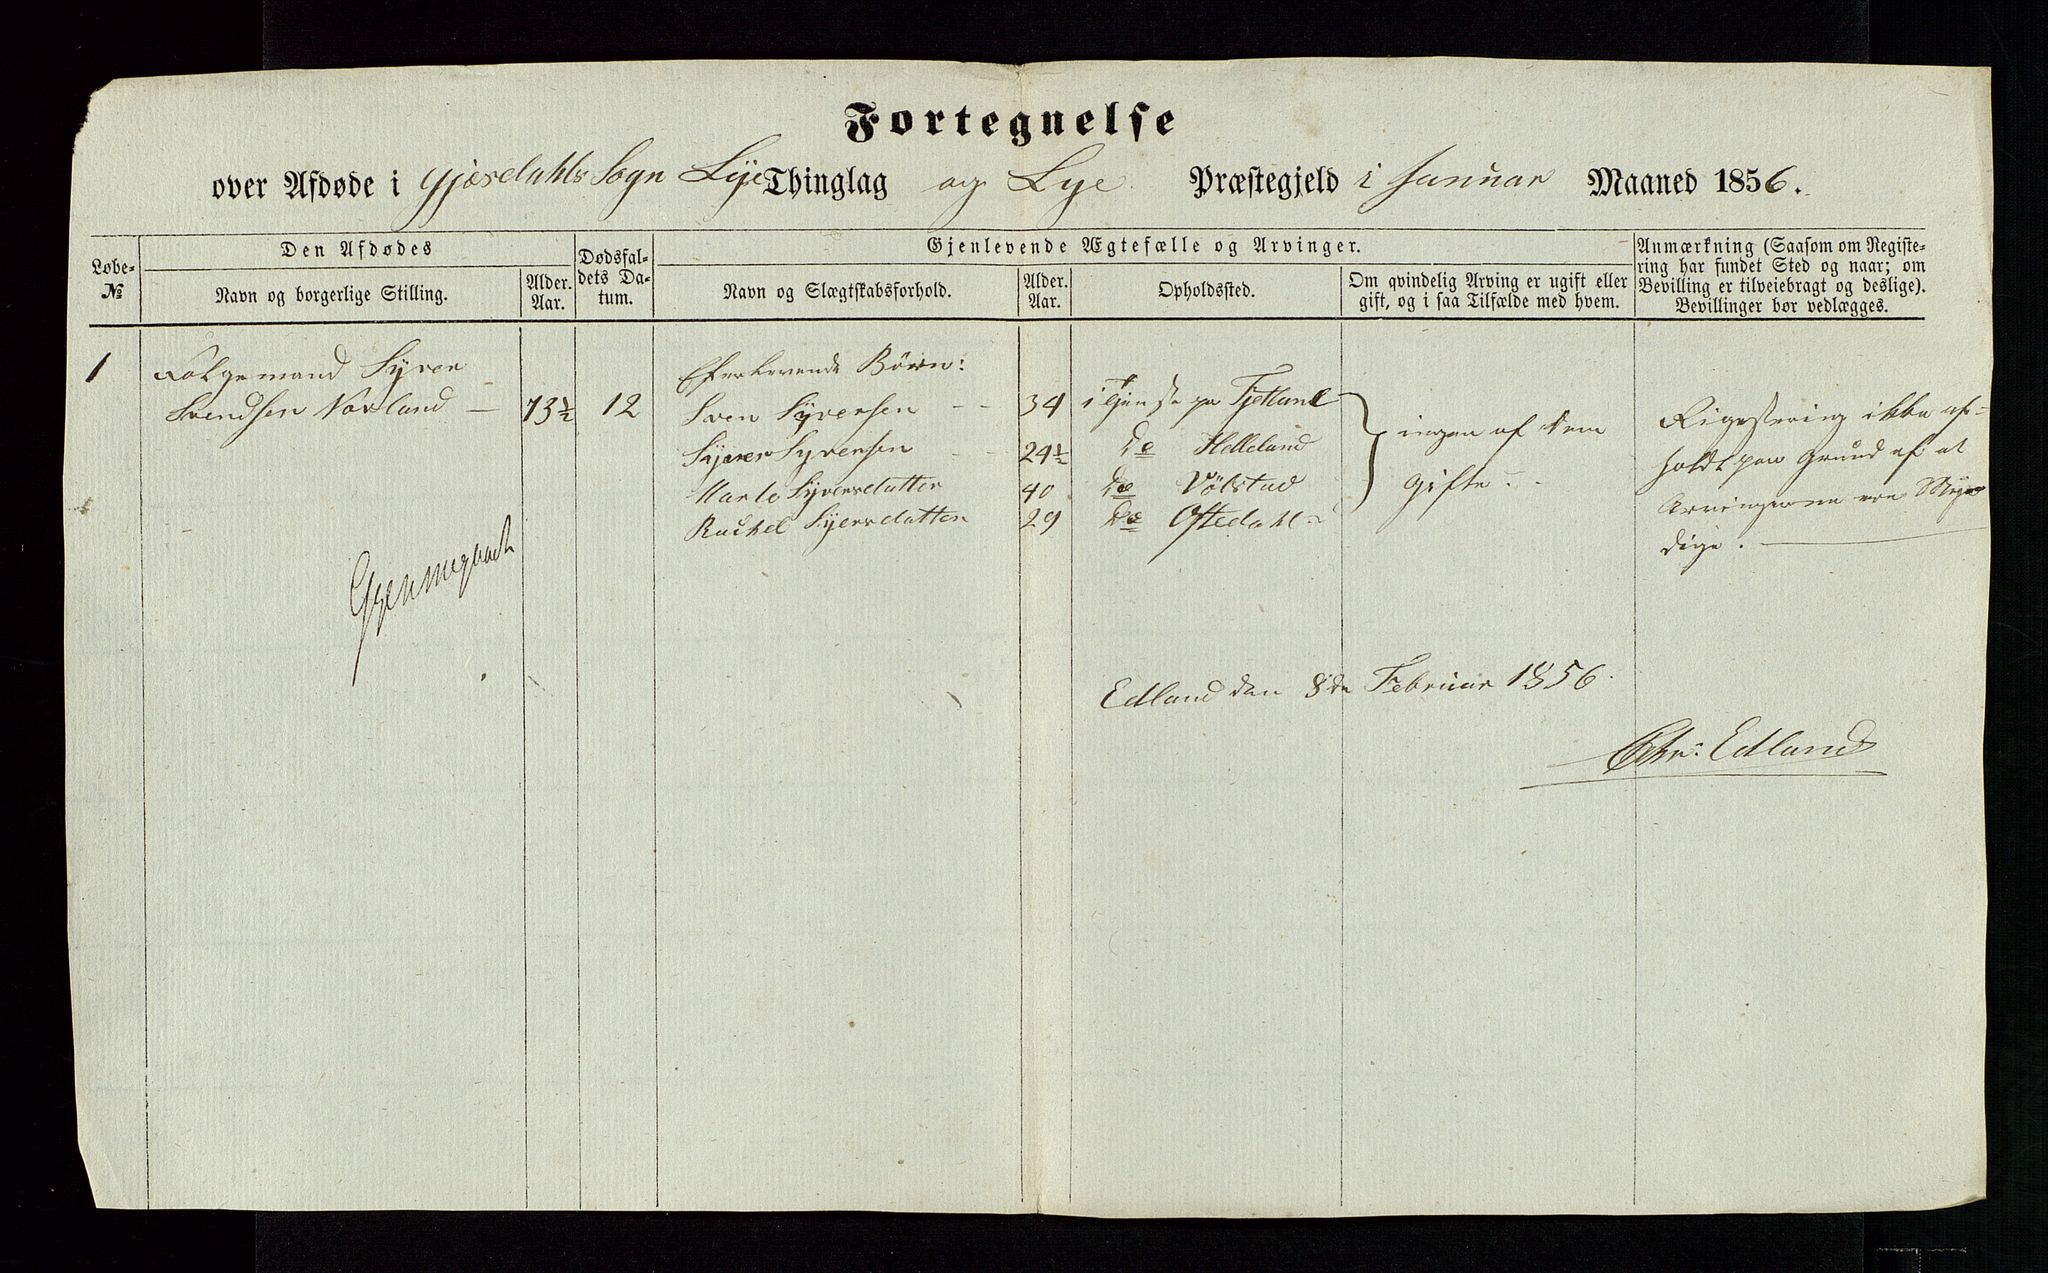 Fortegnelse
over Afdøde i Gjæsdahls Sogn Lye Thinglag og Lye Præstegjeld i Januar Maaned 1856.
Løbe-
№
Den Afdødes
Navn og borgerlige Stilling.
Alder.
Aar.
Dødsfal-
dets Da-
tum.
Gjenlevende Ægtefælle og Arvinger.
Navn og Slægtskabsforhold.
Alder.
Aar.
Opholdssted.
Om qvindelig Arving er ugift eller
gift, og i saa Tilfælde med hvem.
Anmærkning (Saasom om Registe-
ring har fundet Sted og naar; om
Bevilling er tilveiebragt og deslige).
Bevillinger bør vedlægges.
1 Folgemand Syver
Svendsen Navland — 73½ 12
Efterlevende Børn:
Sven Syversen 34 i Tjeneste paa Fjetland
Syver Syversen 24½ Do Helleland
Marte Syversdatter 40 Do Vølstad
Rachel Syversdatter 29 Do Oftedahl
ingen af dem
gifte.
Rigestering ikke af-
holdt paa Grund af at
Arvingerne ere Myn-
dige.
Gjennemgaaet
Edland den 8de Februar 1856.
Chr. Edland